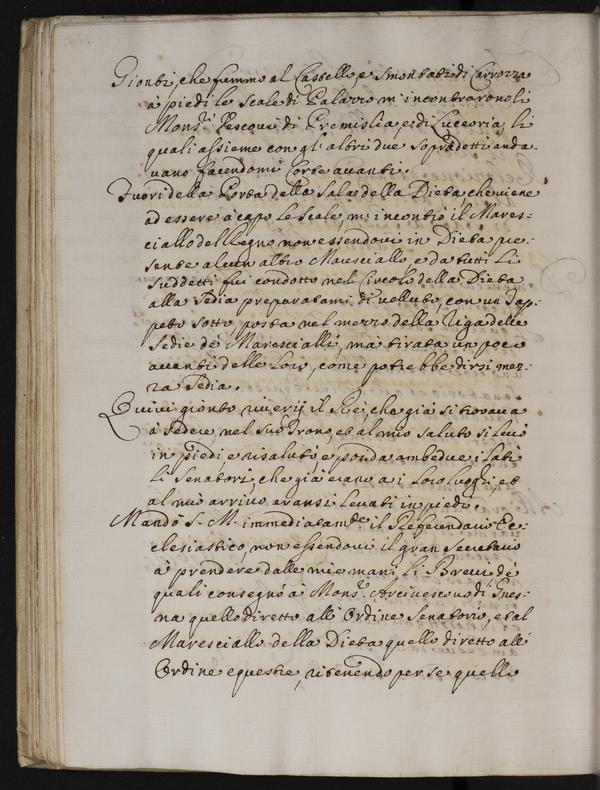 Gionti, che fummo al Castello, e smontati di Carrozza
à piedi le scale di Palazzo m'incontrarono li
Mons.ri Vescovi di Premislia, e di Luceoria, li
quali assieme con gl'altri due sopradetti anda-
vano facendomi Corte avanti.
Fuori della Porta della Sala della Dieta che viene
ad essere à capo le scale, m'incontrò il Mares-
ciallo del Regno non essendovi in Dieta pre-
sente alcun altro Maresciallo, e da tutti li
suddetti fui condotto nel Circolo della Dieta
alla Sedia preparatami di velluto, con un Tap-
peto sotto posta nel mezzo della riga delle
Sedie de Marescialli, mà tirata un poco
avanti delle loro, come potrebbe dirsi mez-
za Sedia.
Quivi gionto riverij il Rè, che già si trovava
à sedere nel suo Trono, et al mio saluto si levò
in piedi e risalutò, e poi da ambedue i lati
li Senatori, che già erano a i loro luoghi, et
al mio arrivo eransi levati in piedi.
Mandò S. M. immediatam.te il Referendario Ec-
clesiastico, non essendovi il gran Secretario
à prendere dalle mie mani li Brevi de
quali consegnò à Mons.r Arcivescovo di Gnes-
na quello diretto all'Ordine Senatorio, et al
Maresciallo della Dieta quello diretto all'
Ordine equestre, ritenendo per se quello